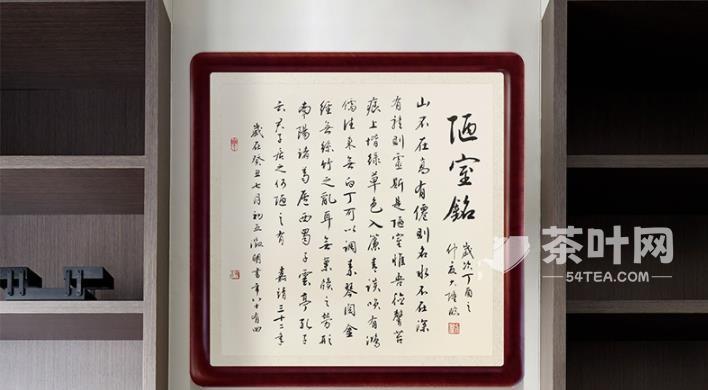 陋室銘
歲次丁酉之
仲夏
山不在高有僊則名水不在深
有龍則靈斯是陋室惟吾德馨苔
痕上堦綠草色入簾青談笑有鴻
儒往來無白丁可以調素琴閱金
經無絲竹之亂耳無案牘之勞形
南陽諸葛廬西蜀子雲亭孔子
云君子居之何陋之有 嘉靖三十二年
歲在癸丑七月初五徵明書年八十有四
茶叶网
54TEA.COM